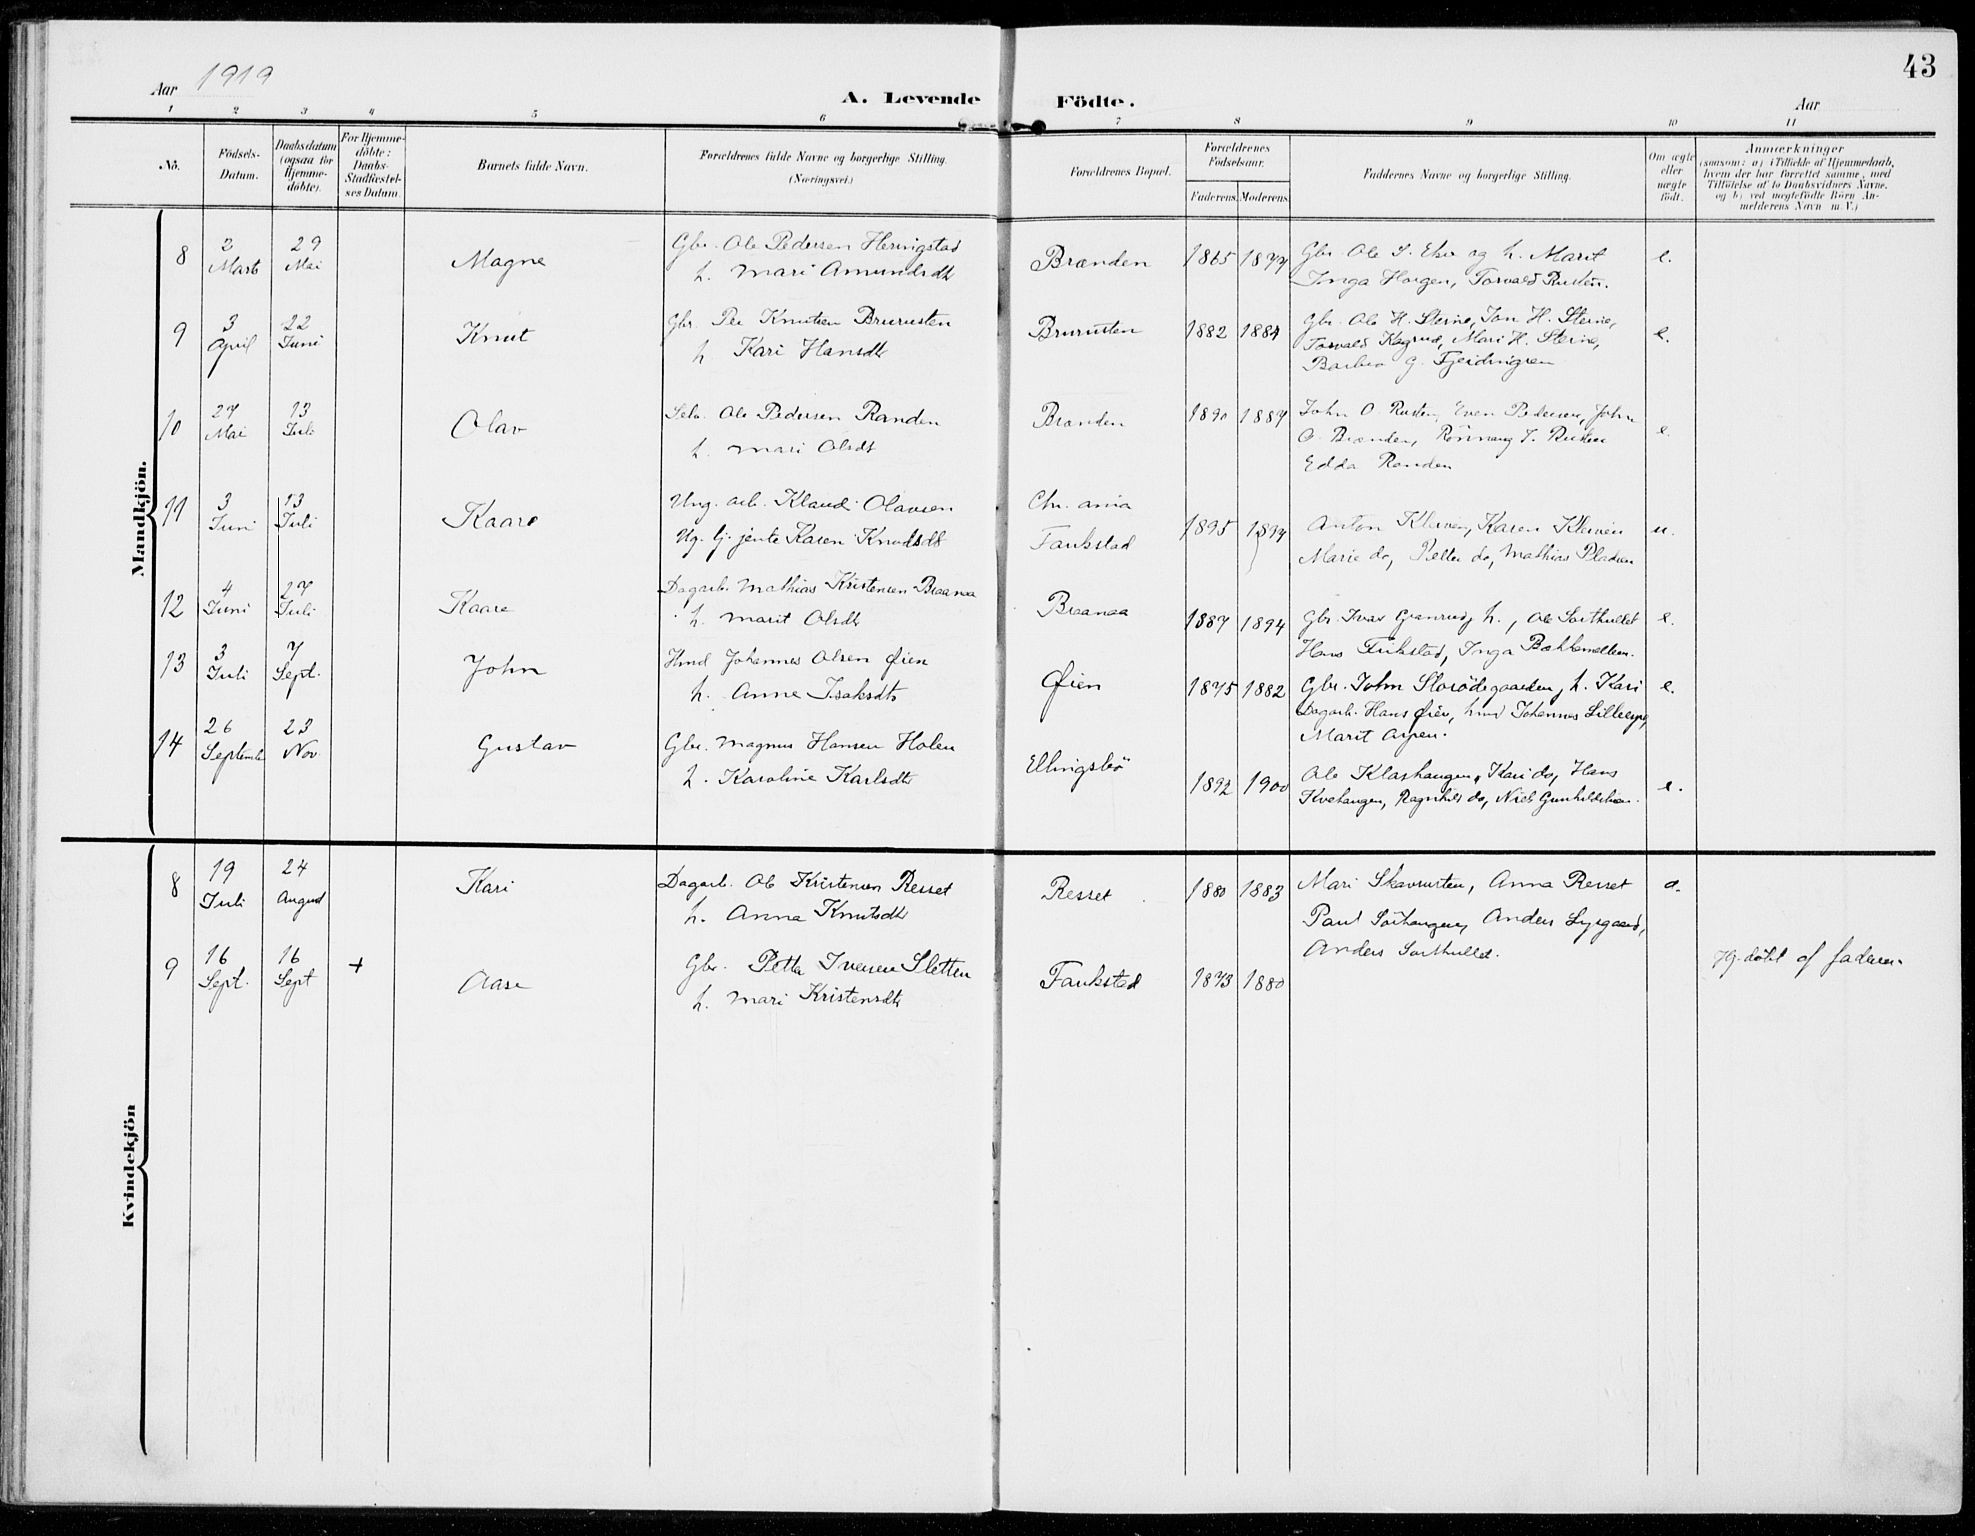 43
Aar 1919
A. Levende Födte.
Aar
1 2 3 4 5 6 7 8 9 10 11
No.
Födsels-
Datum.
Daabsdatum
(ogsaa for
Hjemme-
döbte).
For Hjemme-
döbte:
Daabs-
Stadfæstel-
ses Datum.
Barnets fulde Navn.
Forældrenes fulde Navne og borgerlige Stilling.
(Næringsvei.)
Forældrenes Bopæl.
Forældrenes
Födselsaar.
Faderens. Moderens.
Faddernes Navne og borgerlige Stilling.
Om ægte
eller
uægte
födt.
Anmærkninger
(saasom: a) i Tilfælde af Hjemmedaab,
hvem der har forrettet samme, med
Tilföielse af to Daabsvidners Navne.
og b) ved uægtefödte Börn An-
melderens Navn m. V.)
Mandkjön.
8
2 Marts
29 Mai
Magne
Gbr. Ole Pedersen Heringstad
h. Mari Amundsdtr
Brænden
1865 1877
Gbr. Ole S. og h. Marit
Inga Haugen, Torvald Rusten.
e.
9
3 April
22 Juni
Knut
Gbr. Per Knutsen Brurusten
h Kari Hansdtr
Brurusten
1882 1884
Gbr. Ole H. Steine, Jon H. Steine,
Torvald Kagrud, Mari H. Steine,
Barbro G.
e.
10
27 Mai
13 Juli
Olav
Selv. Ole Pedersen Randen
h. Mari Olsdt
Brænden
1890 1887
John O. Rusten, Even Pedersen, John
O. Brænden, Rönnaug J. Rusten
Edda Randen
e.
11
3 Juni
13 Juli
Kaare
Ung. arb. Klaud Olavsen
Ug. tj. jente Karen Knudsdt
Chr. ania
Faukstad
1895 1897
Anton Kleiven, Karen Kleiven
Marie do, Petter do, Mathias Pladsen
u.
12
4 Juni
27 Juli
Kaare
Dagarb. Mathias Kristensen Braanaa
h. Marit Olsdtr
Braanaa
1887 1894
Gbr. Ivar Granrud, h., Ole Sorthullet
Hans Fukstad, Inga Bakkemellem.
e.
13
3 Juli
7 Sept.
John
Hmd Johannes Olsen Øien
h. Anne Isaksdtr
Øien
1875 1882
Gbr. John Slorödegaarden, h. Kari
Dagarb. Hans Øien, hmd Johannes
Marit Aspen.
e.
14
26 September
23 Nov
Gustav
Gbr. Magnus Hansen Holen
h. Karoline Karlsdtr
Ellingsbö
1892 1900
Ole Klashaugen, Kari do, Hans
Kvehaugen, Ragnhild do, Niels
e.
Kvindekjön
8
19 Juli
24 August
Kari
Dagarb. Ole Kristensen Resset
h. Anna Knutsdtr
Resset
1880 1883
Mari Skavrusten, Anna Resset
Paul Sörhaugen, Anders Lysgaard,
Anders Sorthullet.
e.
9
16 Sept.
16 Sept
+
Aase
Gbr. Petter Iversen Sletten
h. Mari Kristensdtr
Faukstad
1873 1880
Hj. döbt af faderen.